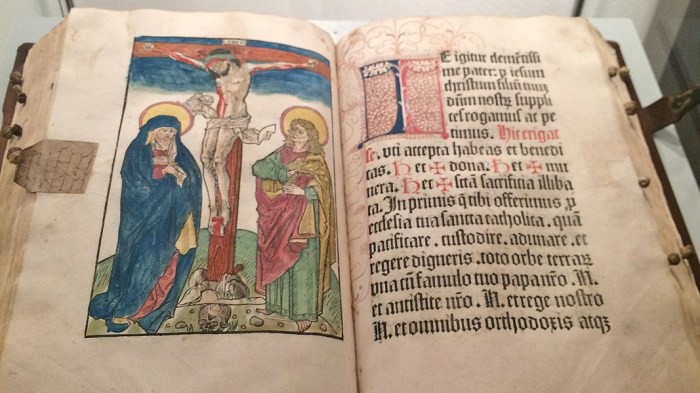 TE igitur clemētissi
me pater. ꝑ iesum
christum filiū tuū
dn̄m nostrū suppli
ces rogamus ac pe
timus. Hic erigat
se. vti accepta habeas et benedi
cas. Hec ✠ dona. Hec ✠ mu
nera. Hec ✠ sctā sacrificia illiba
ta. In primis q̄ tibi offerimus ꝓ
ecclesia tua sancta catholica. quā
pacificare. custodire. adunare. et
regere digneris. toto orbe terraꝝ
vna cū famulo tuo papa nr̄o. N.
et antistite nr̄o. N. et rege nostro
N. et omnibus orthodoxis atqꝫ